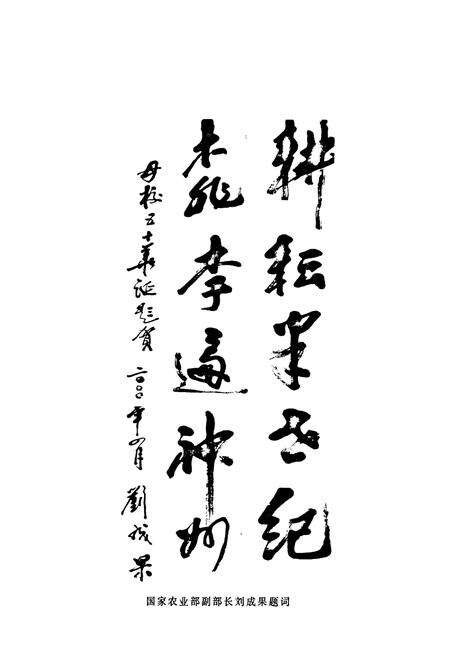 耕耘半世纪
桃李遍神州
母校五十华诞题贺 二〇〇〇年四月 劉成果
国家农业部副部长刘成果题词